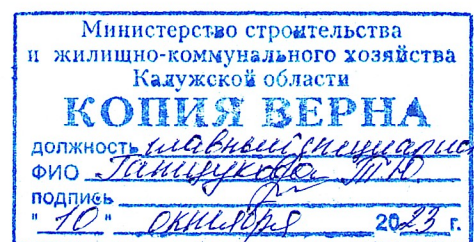 Министерство строительства
и жилищно-коммунального хозяйства
Калужской области
КОПИЯ ВЕРНА
должность главный специалис
ФИО Т.Ю
подпись
"10" октября 2023 г.